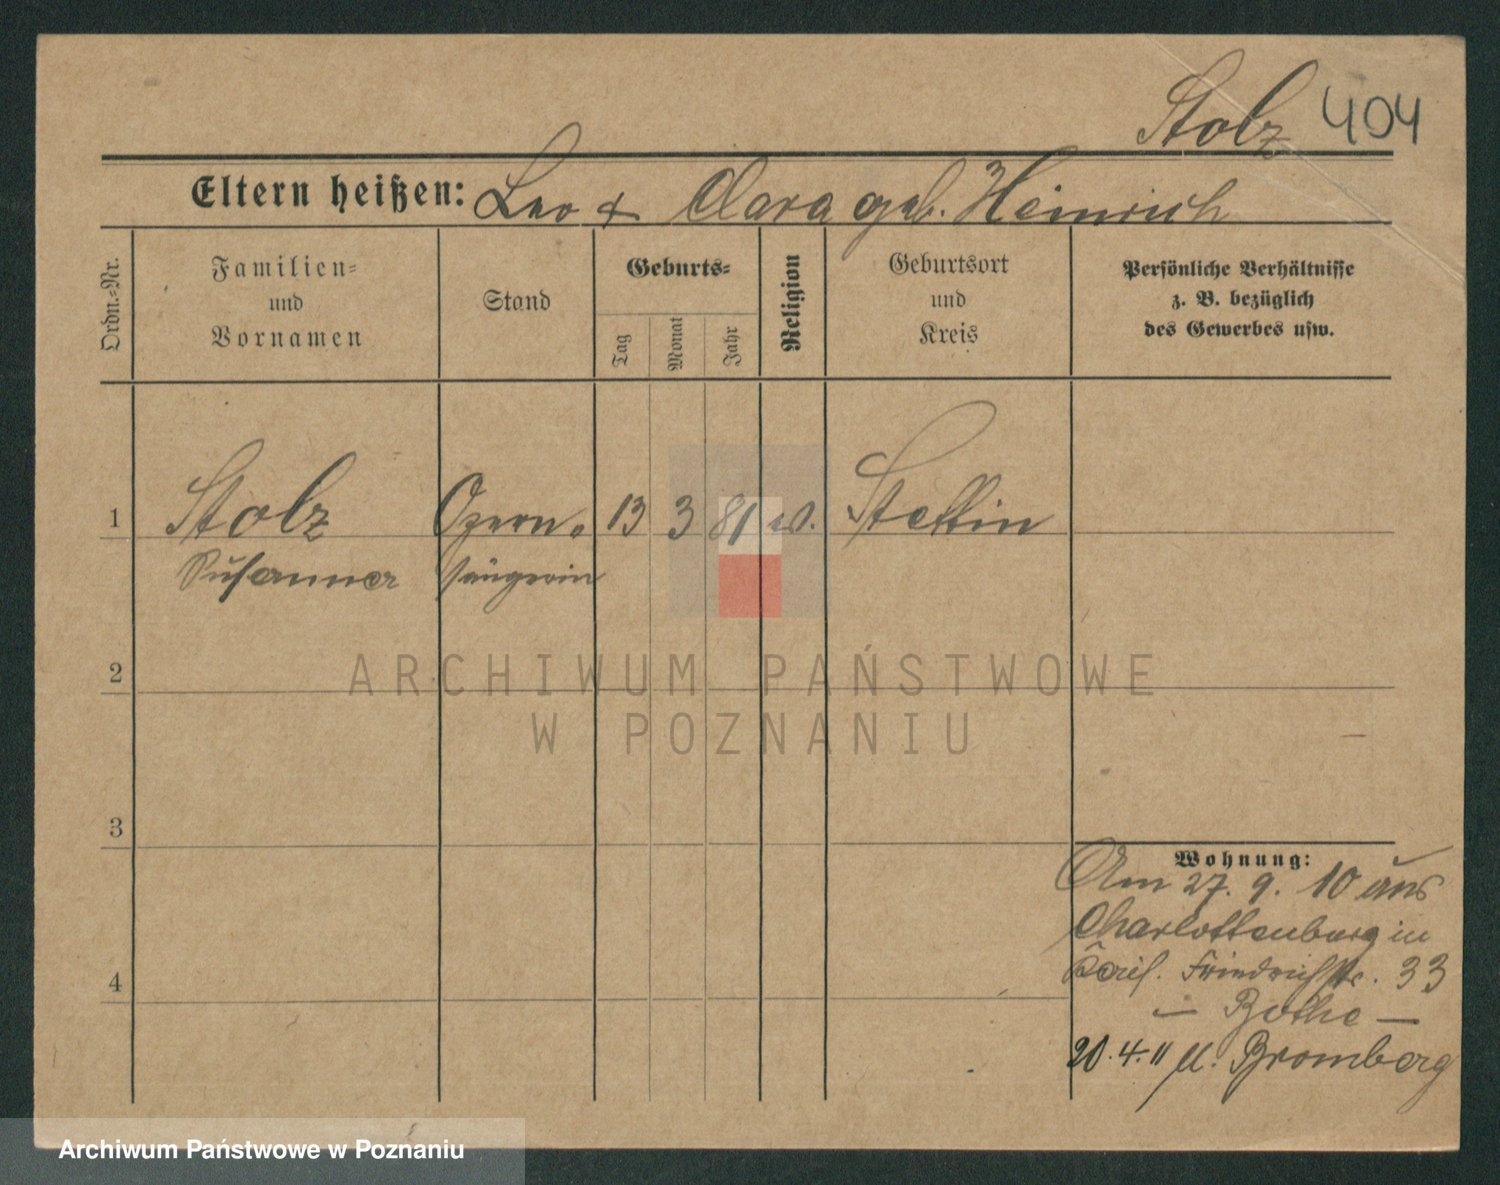 Stolz 404
Eltern heißen: Leo & Clara geb. Heinrich
Ordn.-Nr.
Familien-
und
Vornamen
Stand
Geburts-
Tag
Monat
Jahr
Religion
Geburtsort
und
Kreis
Persönliche Verhältnisse
z. B. bezüglich
des Gewerbes usw.
1 Stolz Opern- 13 3 81 ev. Stettin
Susanna sängerin
2
3
4
Wohnung:
Am 27. 9. 10 aus
Charlottenburg in
Kais. Friedrichstr. 33
— Bothe —
20. 4. 11 Bromberg
ARCHIWUM PAŃSTWOWE
W POZNANIU
Archiwum Państwowe w Poznaniu